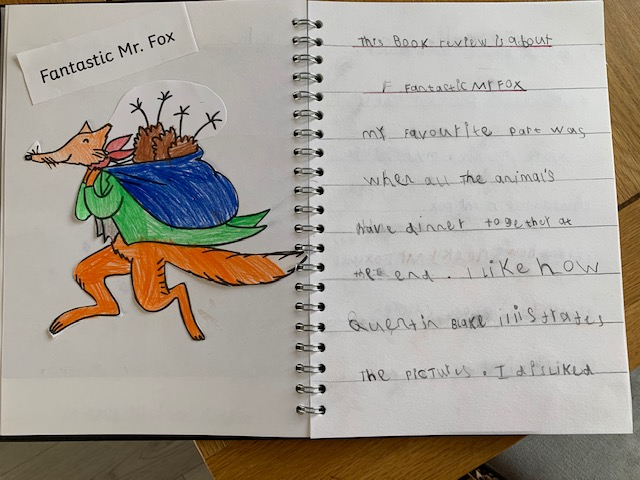 Fantastic Mr. Fox
This Book review is about
F Fantastic Mr Fox
my favourite part was
when all the animal's
have dinner together at
the end. I like how
Quentin Blake illistrates
the pictures. I disliked